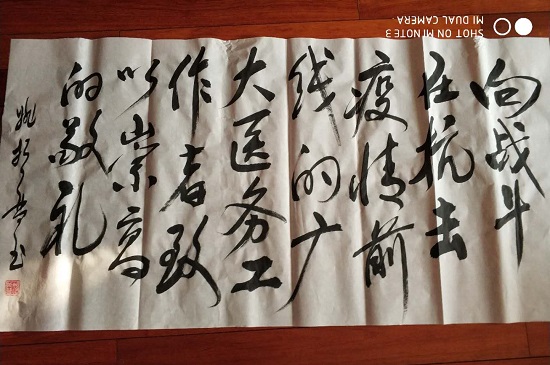 向战斗
在抗击
疫情前
线的广
大医务工
作者致
以崇高
的敬礼
SHOT ON MI NOTE 3
MI DUAL CAMERA